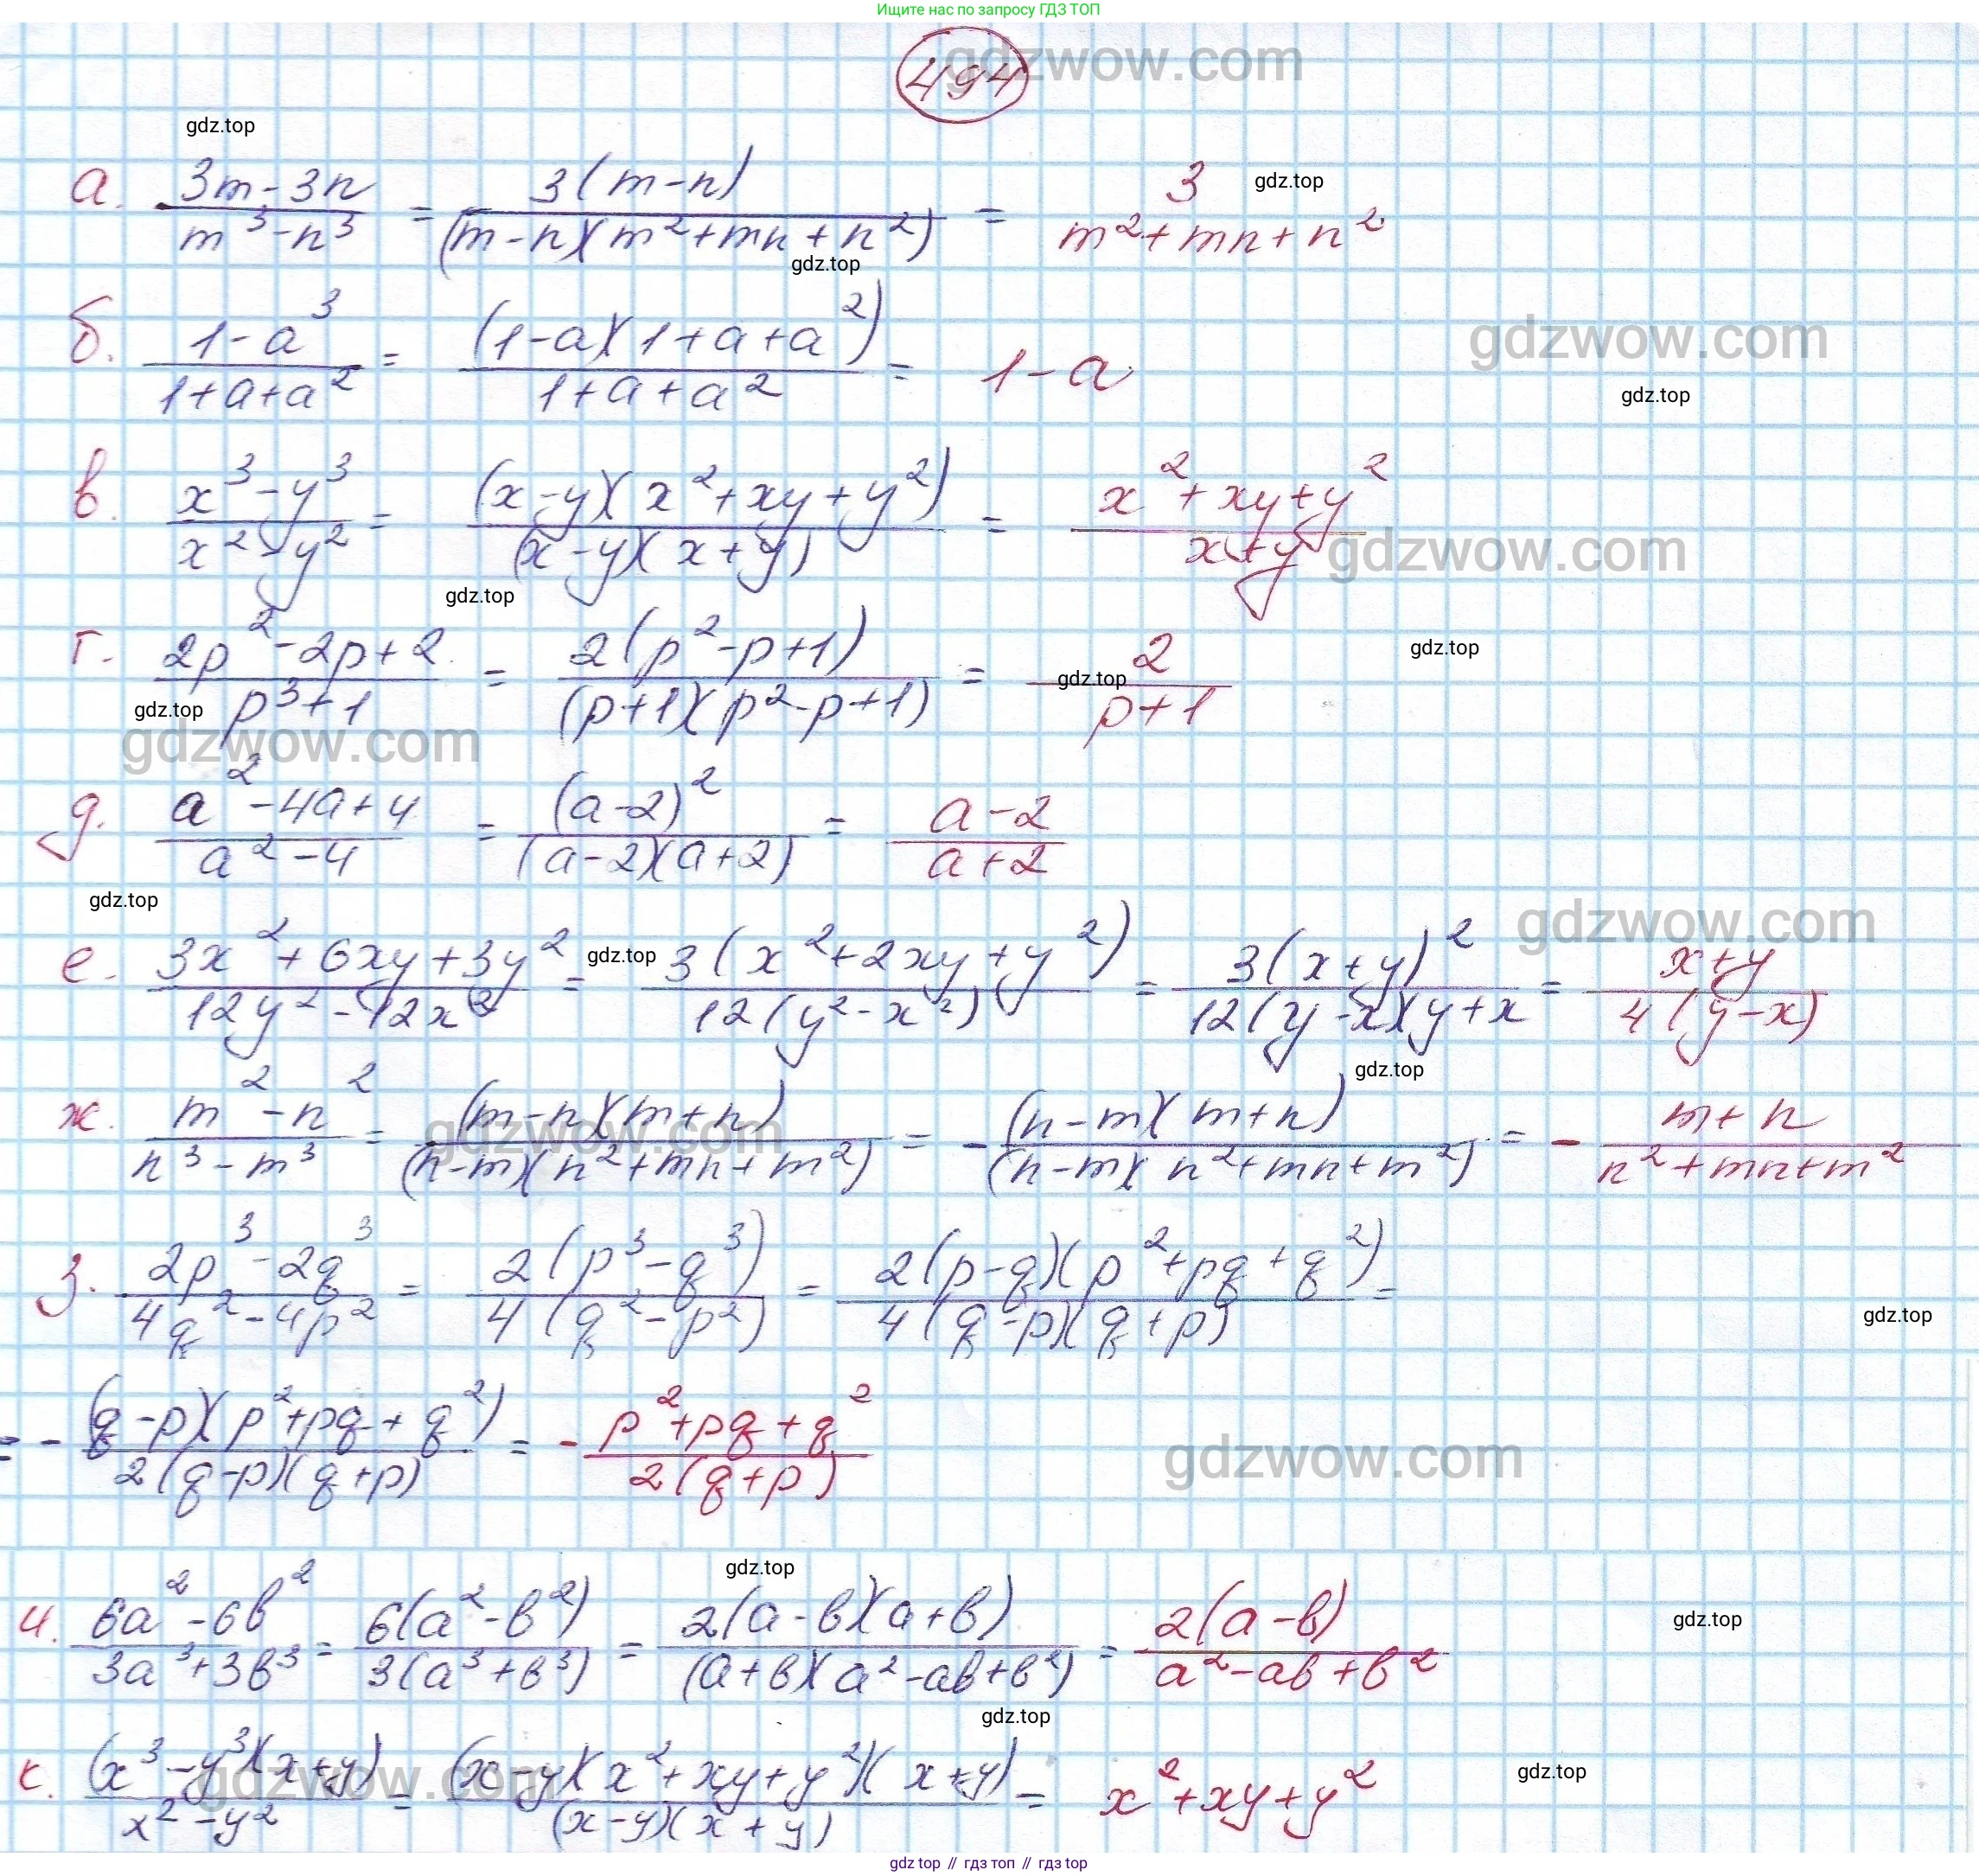 Ищите нас по запросу ГДЗ ТОП
494
gdzwow.com
gdz.top
а. (3m-3n)/(m³-n³) = 3(m-n)/((m-n)(m²+mn+n²)) = 3/(m²+mn+n²)
gdz.top
gdz.top
б. (1-a³)/(1+a+a²) = (1-a)(1+a+a²)/(1+a+a²) = 1-a
gdzwow.com
gdz.top
в. (x³-y³)/(x²-y²) = (x-y)(x²+xy+y²)/((x-y)(x+y)) = (x²+xy+y²)/(x+y)
gdzwow.com
gdz.top
г. (2p²-2p+2)/(p³+1) = 2(p²-p+1)/((p+1)(p²-p+1)) = 2/(p+1)
gdz.top
gdz.top
gdz.top
gdzwow.com
д. (a²-4a+4)/(a²-4) = (a-2)²/((a-2)(a+2)) = (a-2)/(a+2)
gdz.top
gdzwow.com
е. (3x²+6xy+3y²)/(12y²-12x²) = 3(x²+2xy+y²)/(12(y²-x²)) = 3(x+y)²/(12(y-x)(y+x) = (x+y)/(4(y-x))
gdz.top
gdz.top
ж. (m²-n²)/(n³-m³) = (m-n)(m+n)/((n-m)(n²+mn+m²)) = -(n-m)(m+n)/((n-m)(n²+mn+m²)) = -(m+n)/(n²+mn+m²)
gdzwow.com
з. (2p³-2q³)/(4q²-4p²) = 2(p³-q³)/(4(q²-p²)) = 2(p-q)(p²+pq+q²)/(4(q-p)(q+p)) =
gdz.top
= -(q-p)(p²+pq+q²)/(2(q-p)(q+p)) = -(p²+pq+q²)/(2(q+p))
gdzwow.com
gdz.top
и. (6a²-6в²)/(3a³+3в³) = 6(a²-в²)/(3(a³+в³)) = 2(a-в)(a+в)/((a+в)(a²-aв+в²)) = 2(a-в)/(a²-aв+в²)
gdz.top
gdz.top
к. (x³-y³)(x+y)/(x²-y²) = (x-y)(x²+xy+y²)(x+y)/((x-y)(x+y)) = x²+xy+y²
gdzwow.com
gdz.top
gdz top // гдз топ // гдз top